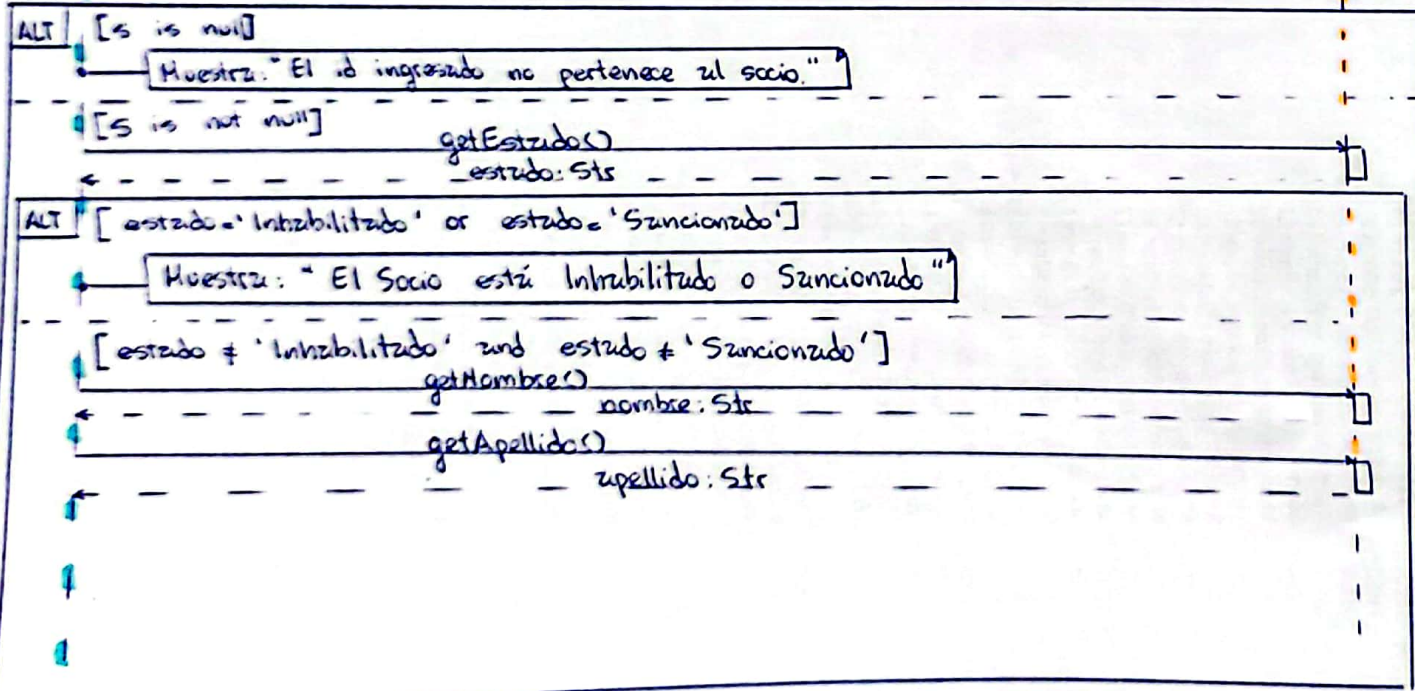 ALT [s is null]
Muestra: "El id ingresado no pertenece al socio."
[s is not null]
getEstado()
estado: Str
ALT [estado = 'Inhabilitado' or estado = 'Sancionado']
Muestra: "El Socio está Inhabilitado o Sancionado"
[estado ≠ 'Inhabilitado' and estado ≠ 'Sancionado']
getNombre()
nombre: Str
getApellido()
apellido: Str